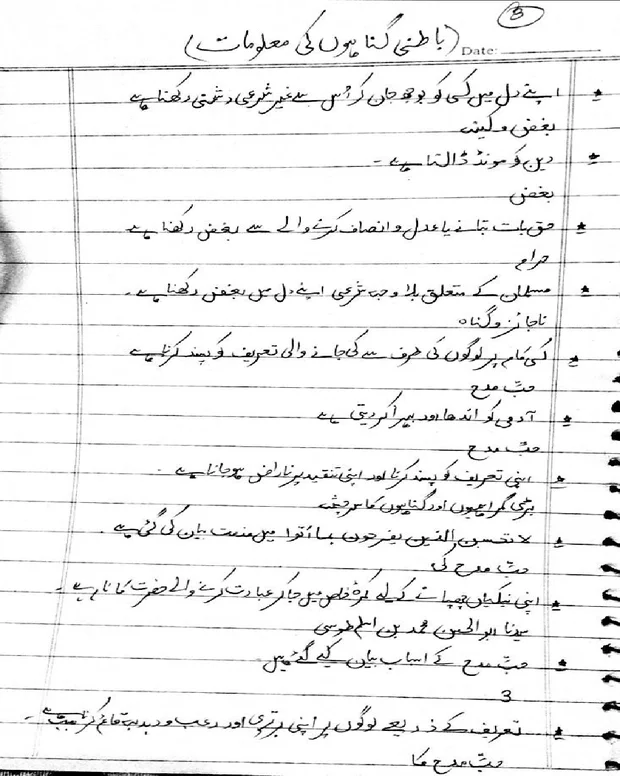 3
(باطنی گناہوں کی معلومات)
Date:
* اپنے دل میں کسی کو بوجھ جان کر اُس سے غیر شرعی دشمنی رکھنا ہے
بغض و کینہ
* دین کو مونڈ ڈالتا ہے -
بغض
* حق بات بتانے یا عدل و انصاف کرنے والے سے بغض رکھنا ہے
حرام
* مسلمان کے متعلق بلا وجہ شرعی اپنے دل میں بغض رکھنا ہے -
ناجائز و گناہ
* کسی کام پر لوگوں کی طرف سے کی جانے والی تعریف کو پسند کرنا ہے
حبّ مدح
* آدمی کو اندھا اور بہرا کر دیتی ہے
حبّ مدح
* اپنی تعریف کو پسند کرنا اور اپنی تنقید پر ناراض ہو جانا ہے -
بڑی گمراہیوں اور گناہوں کا سرچشمہ
* لا تحسبن الذین یفرحون بما أتوا میں مذمت بیان کی گئی ہے -
حبّ مدح کی
* اپنی نیکیاں چھپانے کیلئے کمرۂ خاص میں جا کر عبادت کرنے والے حضرت کا نام ہے -
سیدنا ابو الحسن محمد بن اسلم طوسی
* حبّ مدح کے اسباب بیان کیے گئے ہیں
3
* تعریف کے ذریعے لوگوں پر اپنی برتری اور رعب و دبدبہ قائم کرنا سبب ہے -
حبّ مدح کا